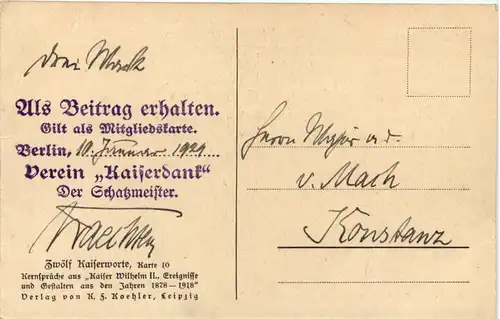 drei Mark
Als Beitrag erhalten.
Gilt als Mitgliedskarte.
Berlin, 10. Januar 1924
Verein „Kaiserdank“
Der Schatzmeister.
Zwölf Kaiserworte, Karte 10
Kernsprüche aus „Kaiser Wilhelm II., Ereignisse
und Gestalten aus den Jahren 1878–1918“
Verlag von K. F. Koehler, Leipzig
Herrn Major a. d.
v. Mach
Konstanz